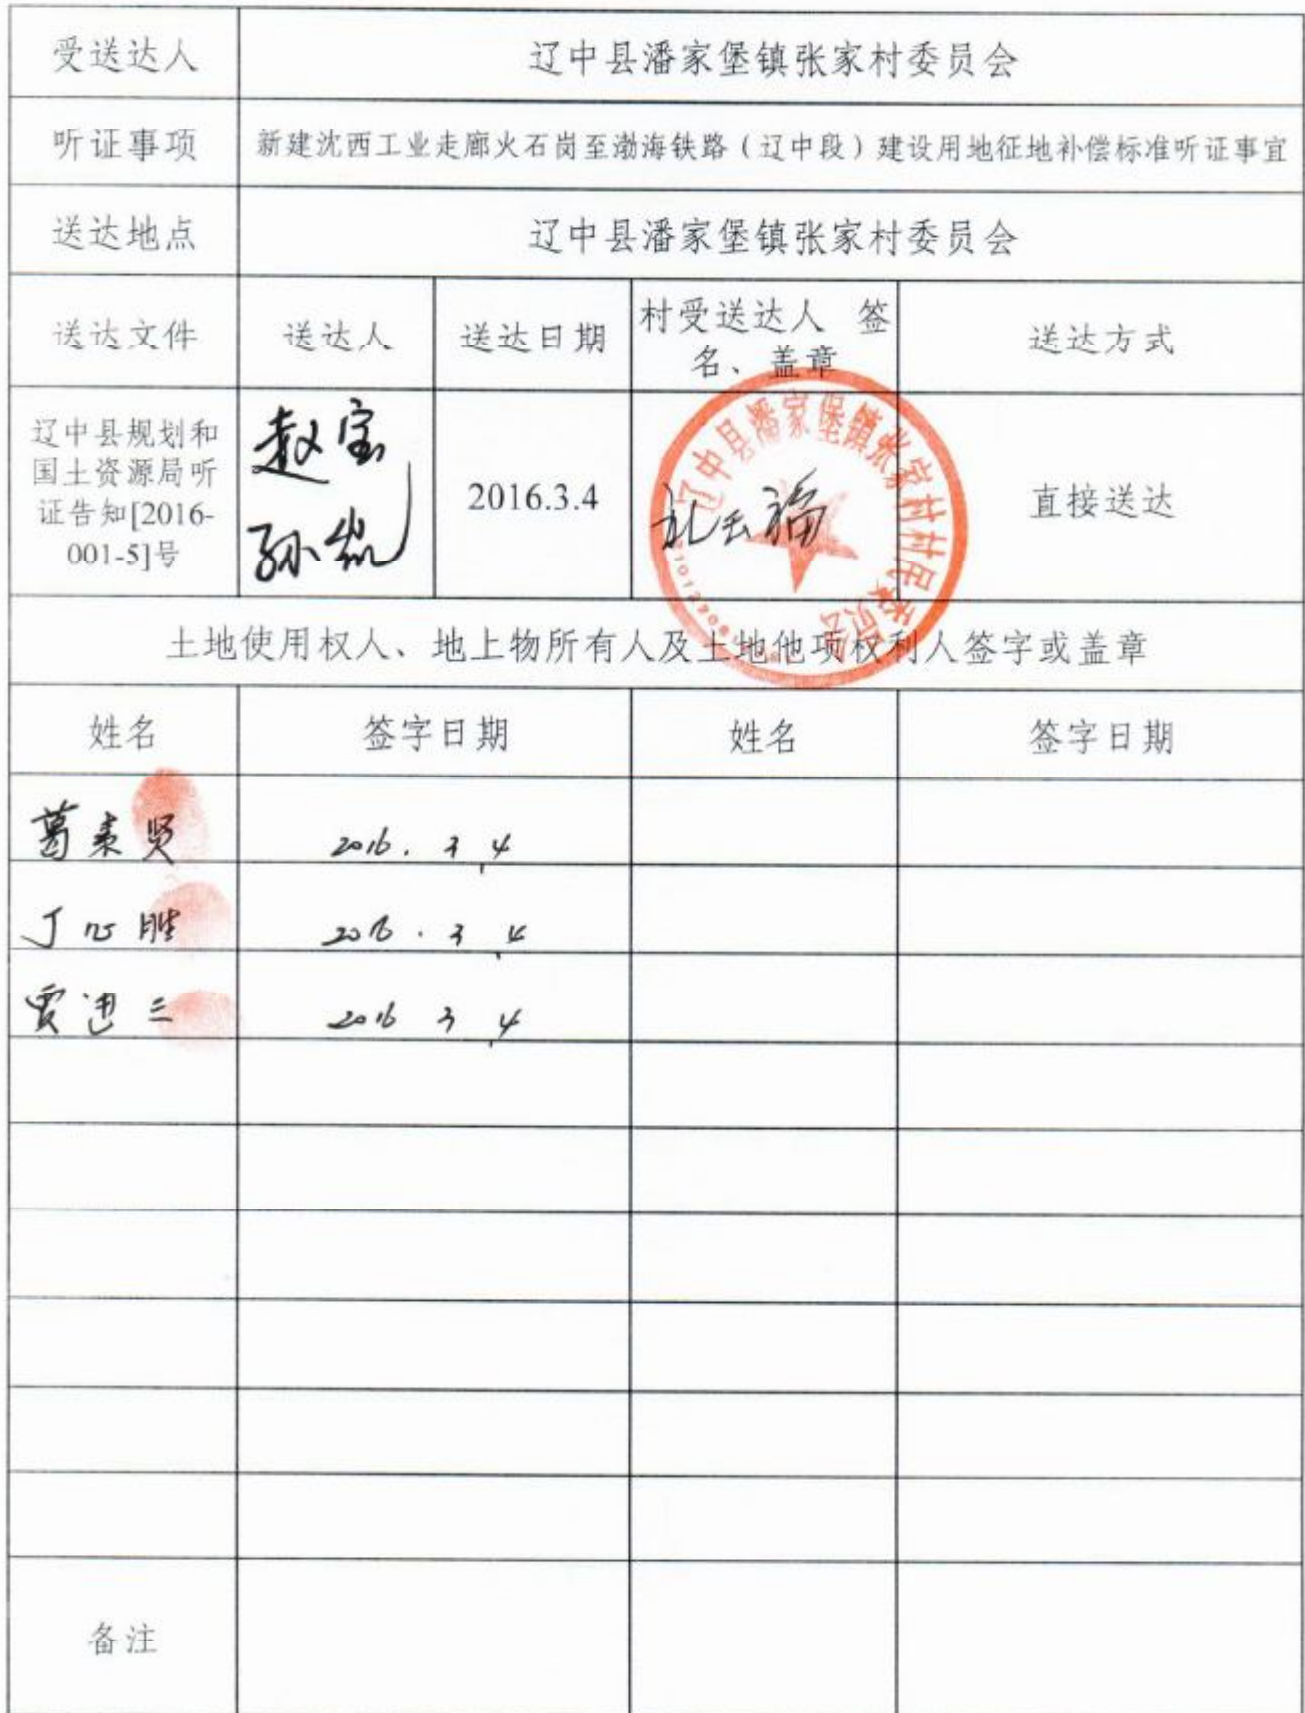 受送达人 辽中县潘家堡镇张家村委员会
听证事项 新建沈西工业走廊火石岗至渤海铁路(辽中段)建设用地征地补偿标准听证事宜
送达地点 辽中县潘家堡镇张家村委员会
送达文件 送达人 送达日期 村受送达人 签名、盖章 送达方式
辽中县规划和
国土资源局听
证告知[2016-
001-5]号
赵宝
孙
2016.3.4
福
辽中县潘家堡镇张家村村民委员会
直接送达
土地使用权人、地上物所有人及土地他项权利人签字或盖章
姓名 签字日期 姓名 签字日期
葛素贤 2016.3.4
丁心胜 2016.3.4
贾进三 2016 3.4
备注